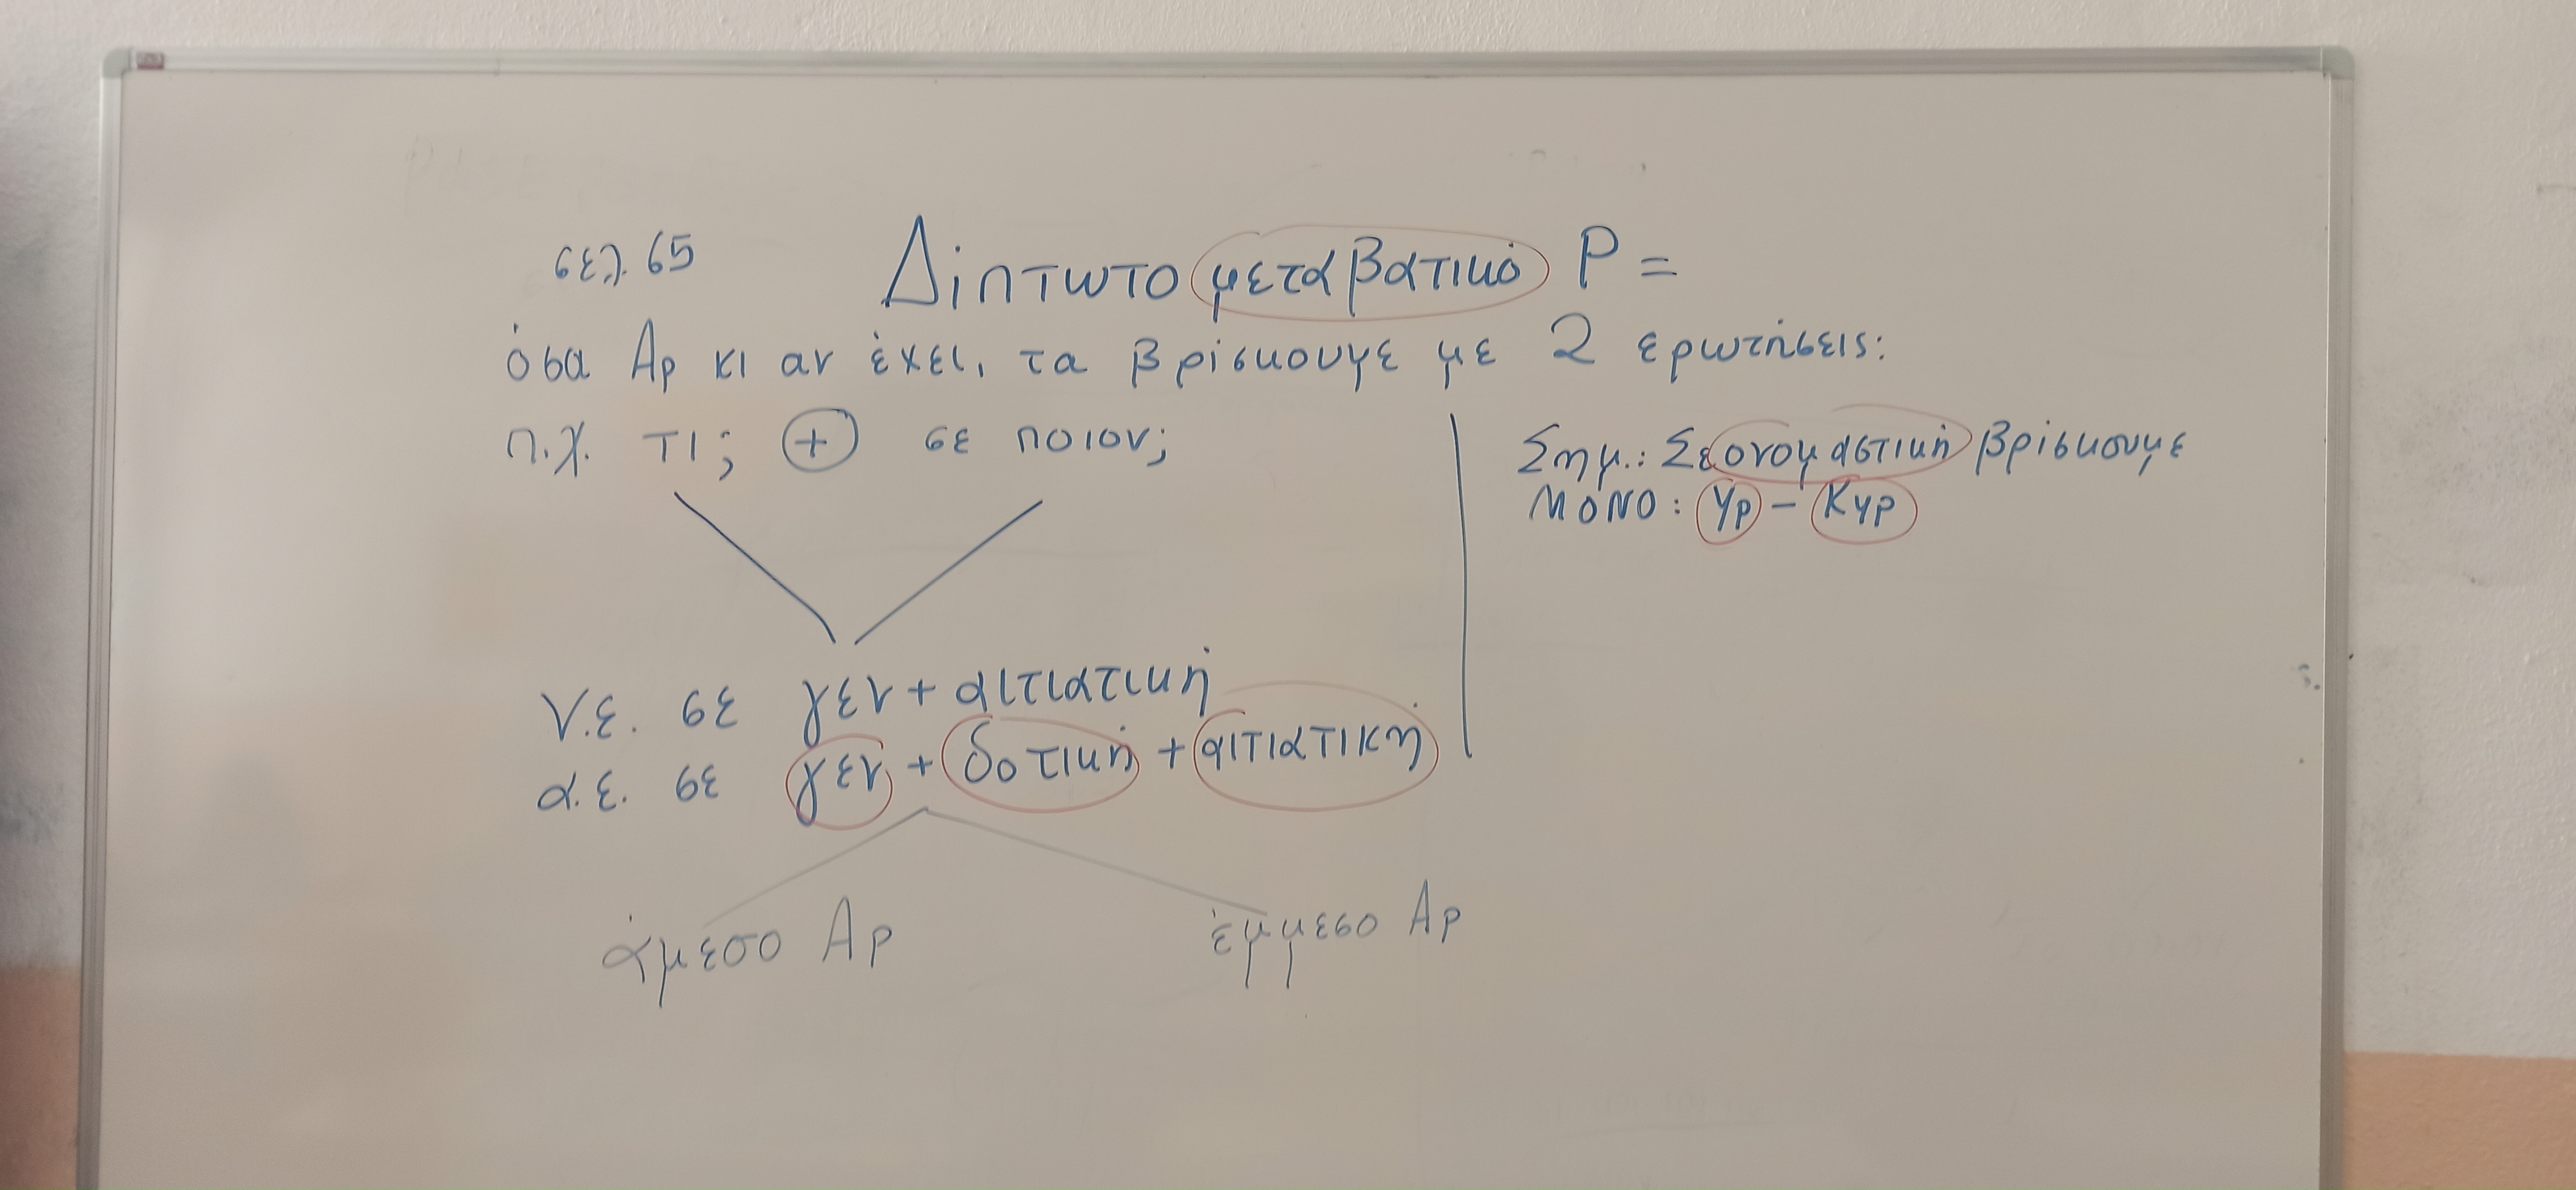 σελ. 65
Δίπτωτο μεταβατικό Ρ =
όσα Αρ κι αν έχει, τα βρίσκουμε με 2 ερωτήσεις:
π.χ. τι; + σε ποιον;
Σημ.: Σε ονομαστική βρίσκουμε
ΜΟΝΟ: Υρ - Κγρ
ν.ε. σε γεν + αιτιατική
α.ε. σε γεν + δοτική + αιτιατική
άμεσο Αρ
έμμεσο Αρ